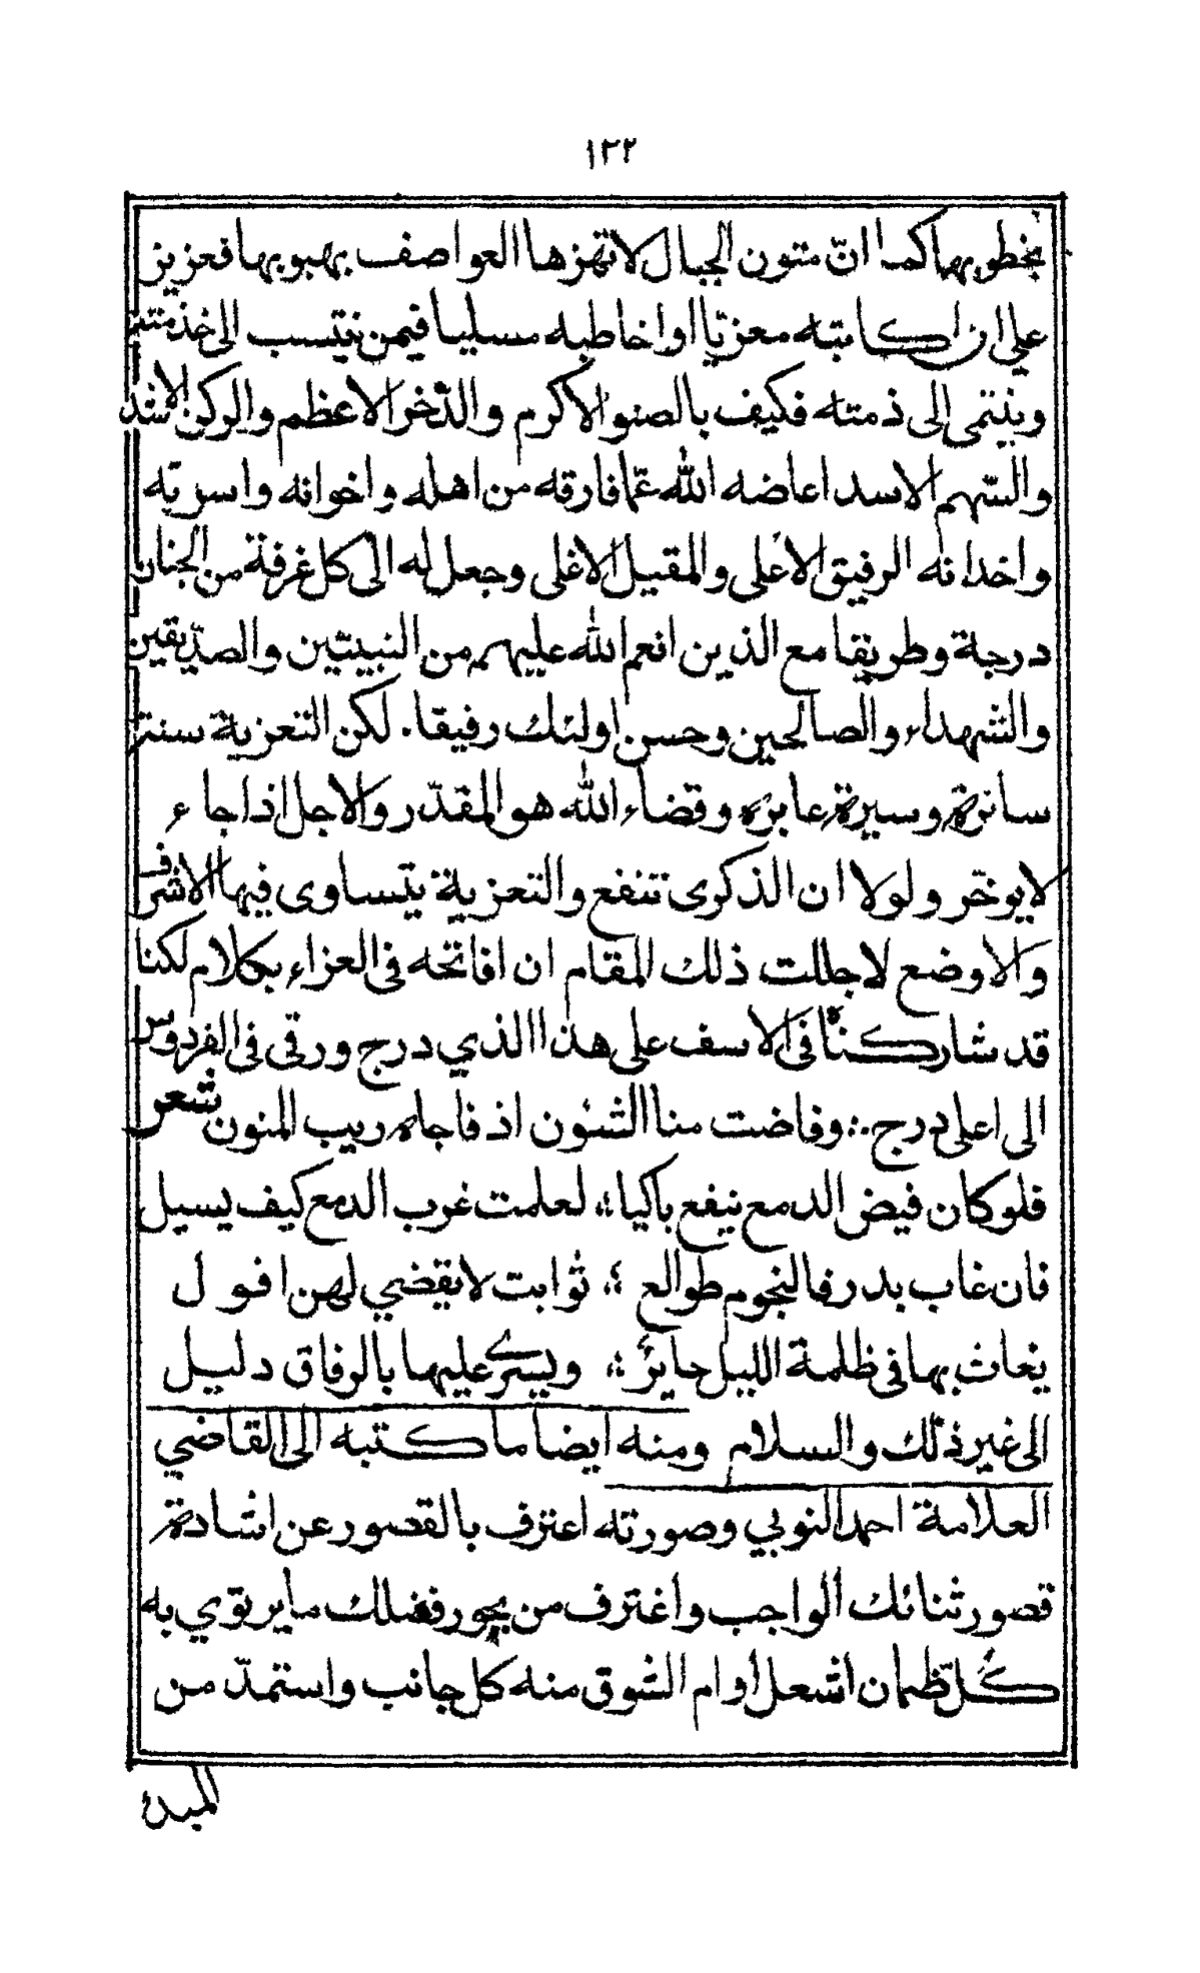 ١٢٢
بخطوبها كما انّ متون الجبال لا تهزها العواصف بهبوبها فعزيز
على ان اكاتبه معزيّا او اخاطبه مسليا فيمن ينتسب الى خدمته
وينتمى الى ذمته فكيف بالصنو الاكرم والذّخر الاعظم والركن الاشد
والسّهم الاسد اعاضه الله عمّا فارقه من اهله واخوانه واسرته
واخدانه الرفيق الاعلى والمقيل الاغلى وجعل له الى كل غرفة من الجنان
درجة وطريقا مع الذين انعم الله عليهم من النبيّين والصدّيقين
والشهداء والصالحين وحسن اولئك رفيقا. لكن التعزية سنة
سائرة وسيرة عابرة وقضاء الله هو المقدّر والاجل اذا جاء
لا يوخّر ولولا ان الذكرى تنفع والتعزية يتساوى فيها الاشرف
والاوضع لاجللت ذلك المقام ان افاتحه فى العزاء بكلام لكنا
قد شاركناه فى الاسف على هذا الذي درج ورقى فى الفردوس
الى اعلى درج .: وفاضت منا الشئون اذ فاجاه ريب المنون شعر
فلو كان فيض الدمع ينفع باكيا ؛ لعلمت غرب الدمع كيف يسيل
فان غاب بدر فالنجوم طوالع ؛ ثوابت لا يقضي لهن افول
يغاث بها فى ظلمة الليل حاير ؛ ويسرى عليها بالرفاق دليل
الى غير ذلك والسلام ومنه ايضا ما كتبه الى القاضي
العلامة احمد النوبي وصورته اعترف بالقصور عن اشادة
قصور ثنائك الواجب واغترف من بحور فضلك ما يرتوي به
كل ظمان اشعل اوام الشوق منه كل جانب واستمدّ من
المبدئ